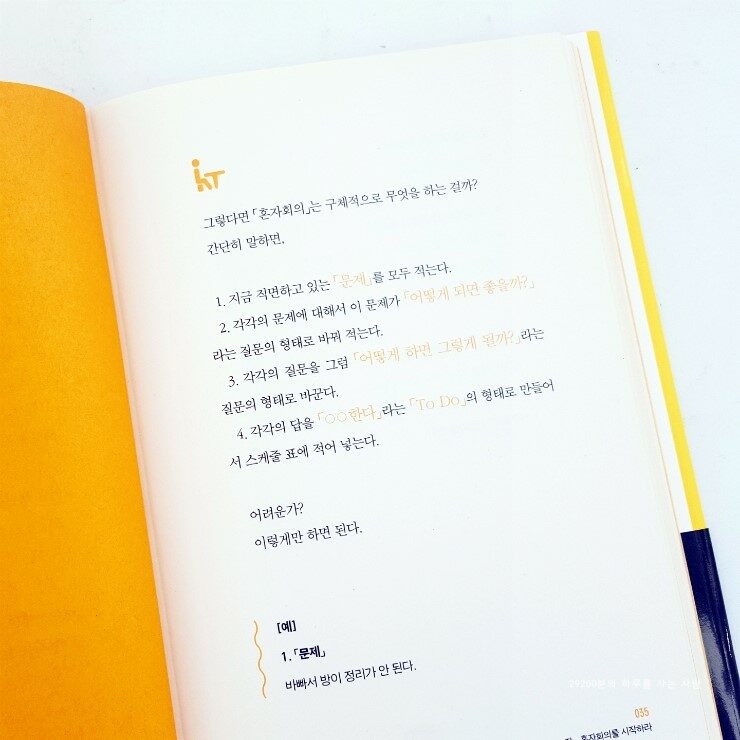 그렇다면 「혼자회의」는 구체적으로 무엇을 하는 걸까?
간단히 말하면,
1. 지금 직면하고 있는 「문제」를 모두 적는다.
2. 각각의 문제에 대해서 이 문제가 「어떻게 되면 좋을까?」
라는 질문의 형태로 바꿔 적는다.
3. 각각의 질문을 그럼 「어떻게 하면 그렇게 될까?」라는
질문의 형태로 바꾼다.
4. 각각의 답을 「○○한다」라는 「To Do」의 형태로 만들어
서 스케줄 표에 적어 넣는다.
어려운가?
이렇게만 하면 된다.
[예]
1. 「문제」
바빠서 방이 정리가 안 된다.
하루를 사는 사람
035
혼자회의를 시작하라